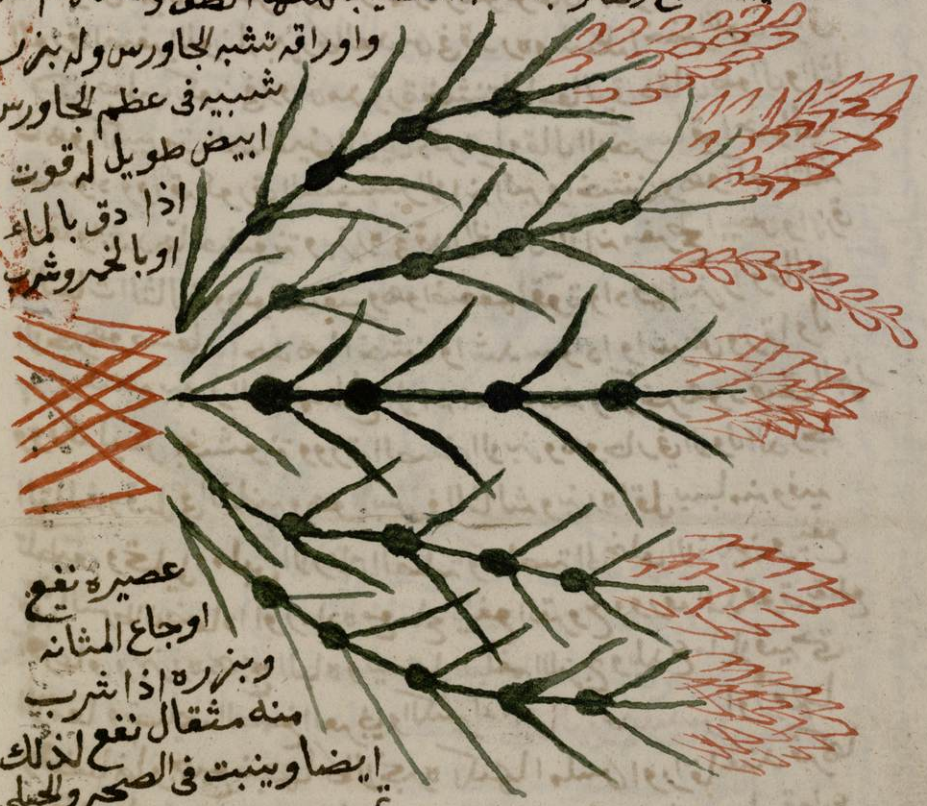 واوراقه تشبه الجاورس وله بزر
شبيه فى عظم الجاورس
ابيض طويل له قوت
اذا دق بالماء
اوبالخمر وشرب
عصيره نفع
اوجاع المثانه
وبزره اذا شرب
منه مثقال نفع لذلك
ايضا وينبت فى الصخر و